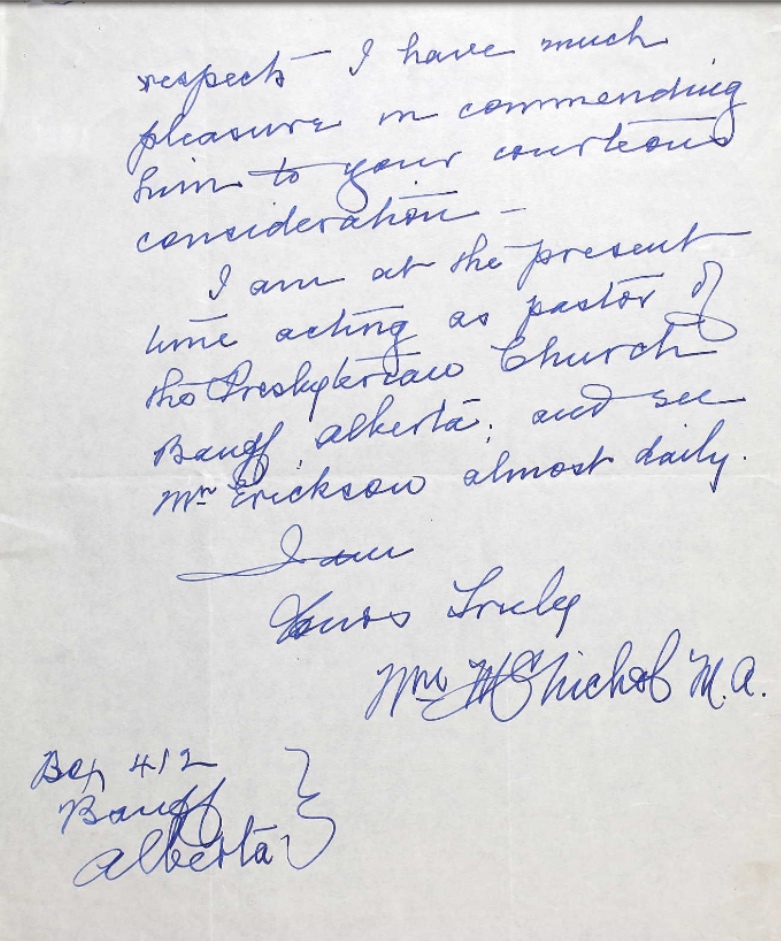 respects – I have much
pleasure in commending
him to your courteous
consideration –
I am at the present
time acting as pastor of
the Presbyterian Church
Banff Alberta; and see
Mr Erickson almost daily.
I am
Yours Truly
Wm McNichol M.A.
Box 412
Banff
Alberta